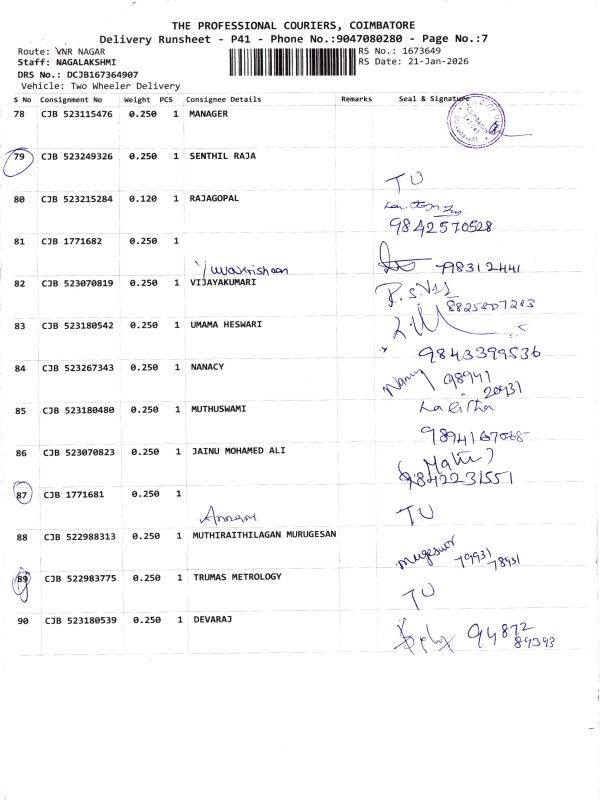 THE PROFESSIONAL COURIERS, COIMBATORE
Delivery Runsheet - P41 - Phone No.:9047080280 - Page No.:7
Route: VNR NAGAR
RS No.: 1673649
Staff: NAGALAKSHMI
RS Date: 21-Jan-2026
DRS No.: DCJB167364907
Vehicle: Two Wheeler Delivery
S No Consignment No Weight PCS Consignee Details Remarks Seal & Signature
78 CJB 523115476 0.250 1 MANAGER
79 CJB 523249326 0.250 1 SENTHIL RAJA
TU
80 CJB 523215284 0.120 1 RAJAGOPAL
9842570528
81 CJB 1771682 0.250 1
Yuvakrishnan 798312441
82 CJB 523070819 0.250 1 VIJAYAKUMARI
83 CJB 523180542 0.250 1 UMAMA HESWARI
9843399536
84 CJB 523267343 0.250 1 NANACY
Nancy 98941
20931
85 CJB 523180480 0.250 1 MUTHUSWAMI
Lalitha
9894167068
86 CJB 523070823 0.250 1 JAINU MOHAMED ALI
9842231551
87 CJB 1771681 0.250 1
TU
88 CJB 522988313 0.250 1 MUTHIRAITHILAGAN MURUGESAN
79931
78931
89 CJB 522983775 0.250 1 TRUMAS METROLOGY
TU
90 CJB 523180539 0.250 1 DEVARAJ
94872
89393